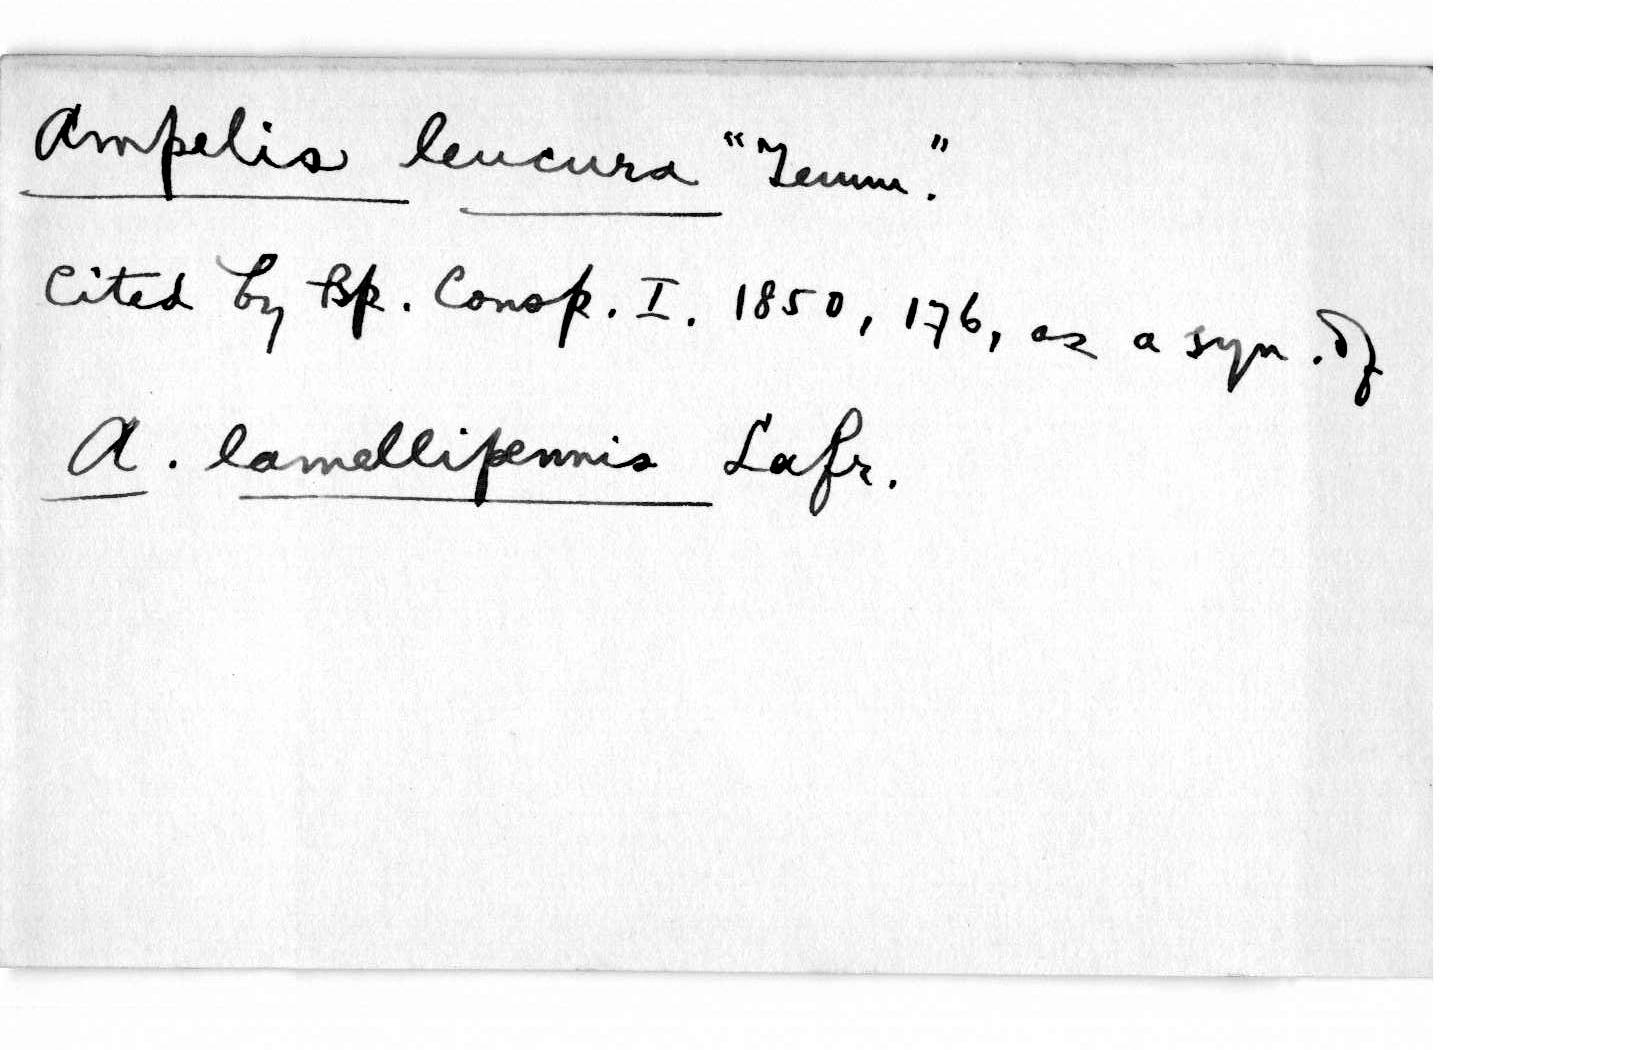 Ampelis leucura "Temm."
Cited by Bp. Consp. I. 1850, 176, as a syn. of
A. lamellipennis Lafr.